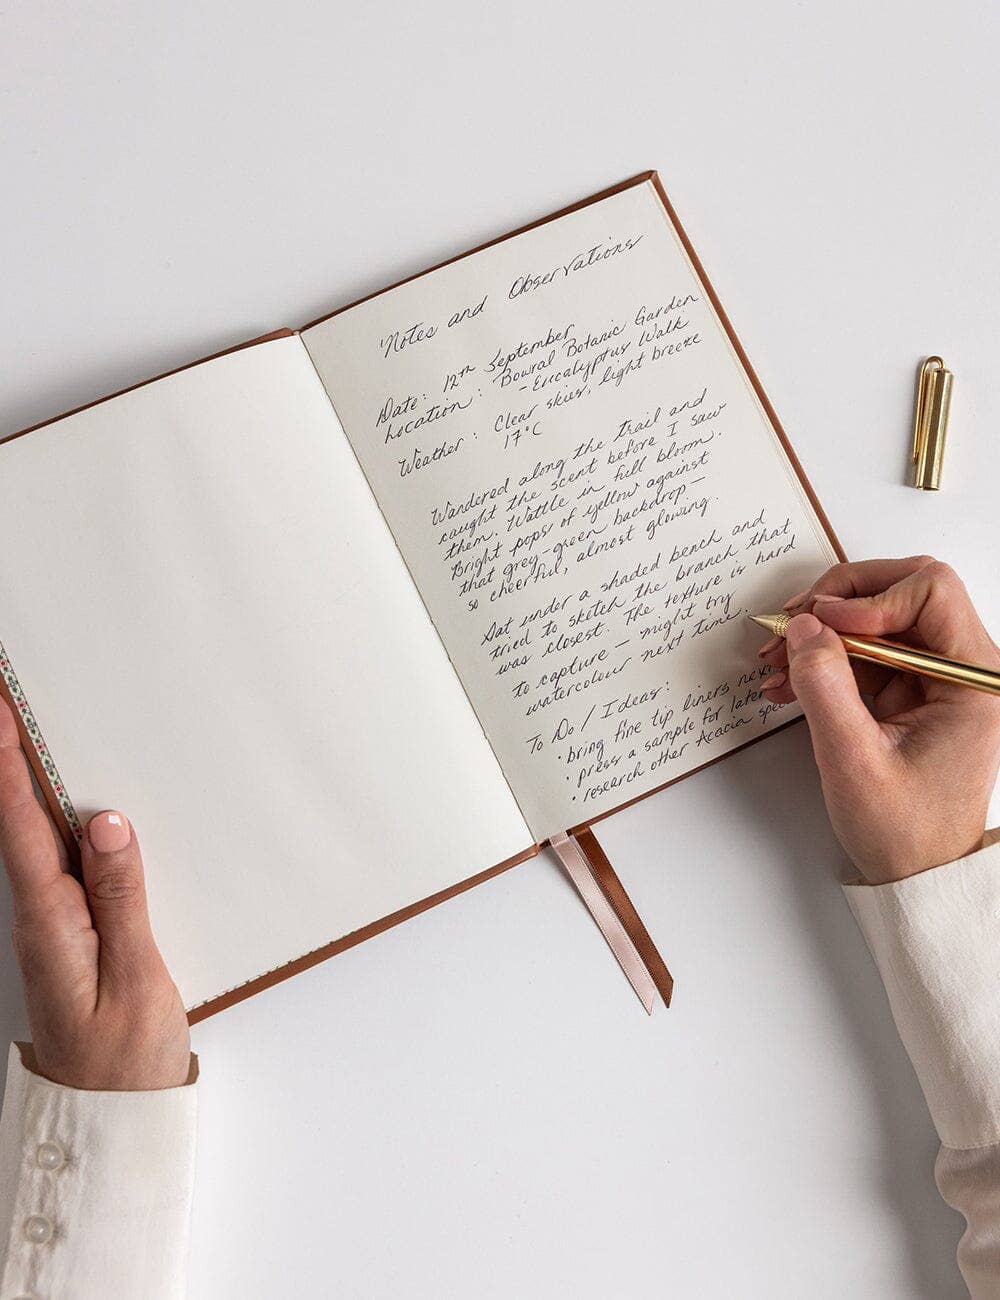 Notes and Observations
Date: 12th September
Location: Bowral Botanic Garden
- Eucalyptus Walk
Weather: Clear skies, light breeze
17°C
Wandered along the trail and
caught the scent before I saw
them. Wattle in full bloom.
Bright pops of yellow against
that grey-green backdrop -
so cheerful, almost glowing.
Sat under a shaded bench and
tried to sketch the branch that
was closest. The texture is hard
to capture - might try
watercolour next time.
To Do / Ideas:
• bring fine tip liners next
• press a sample for later
• research other Acacia spec